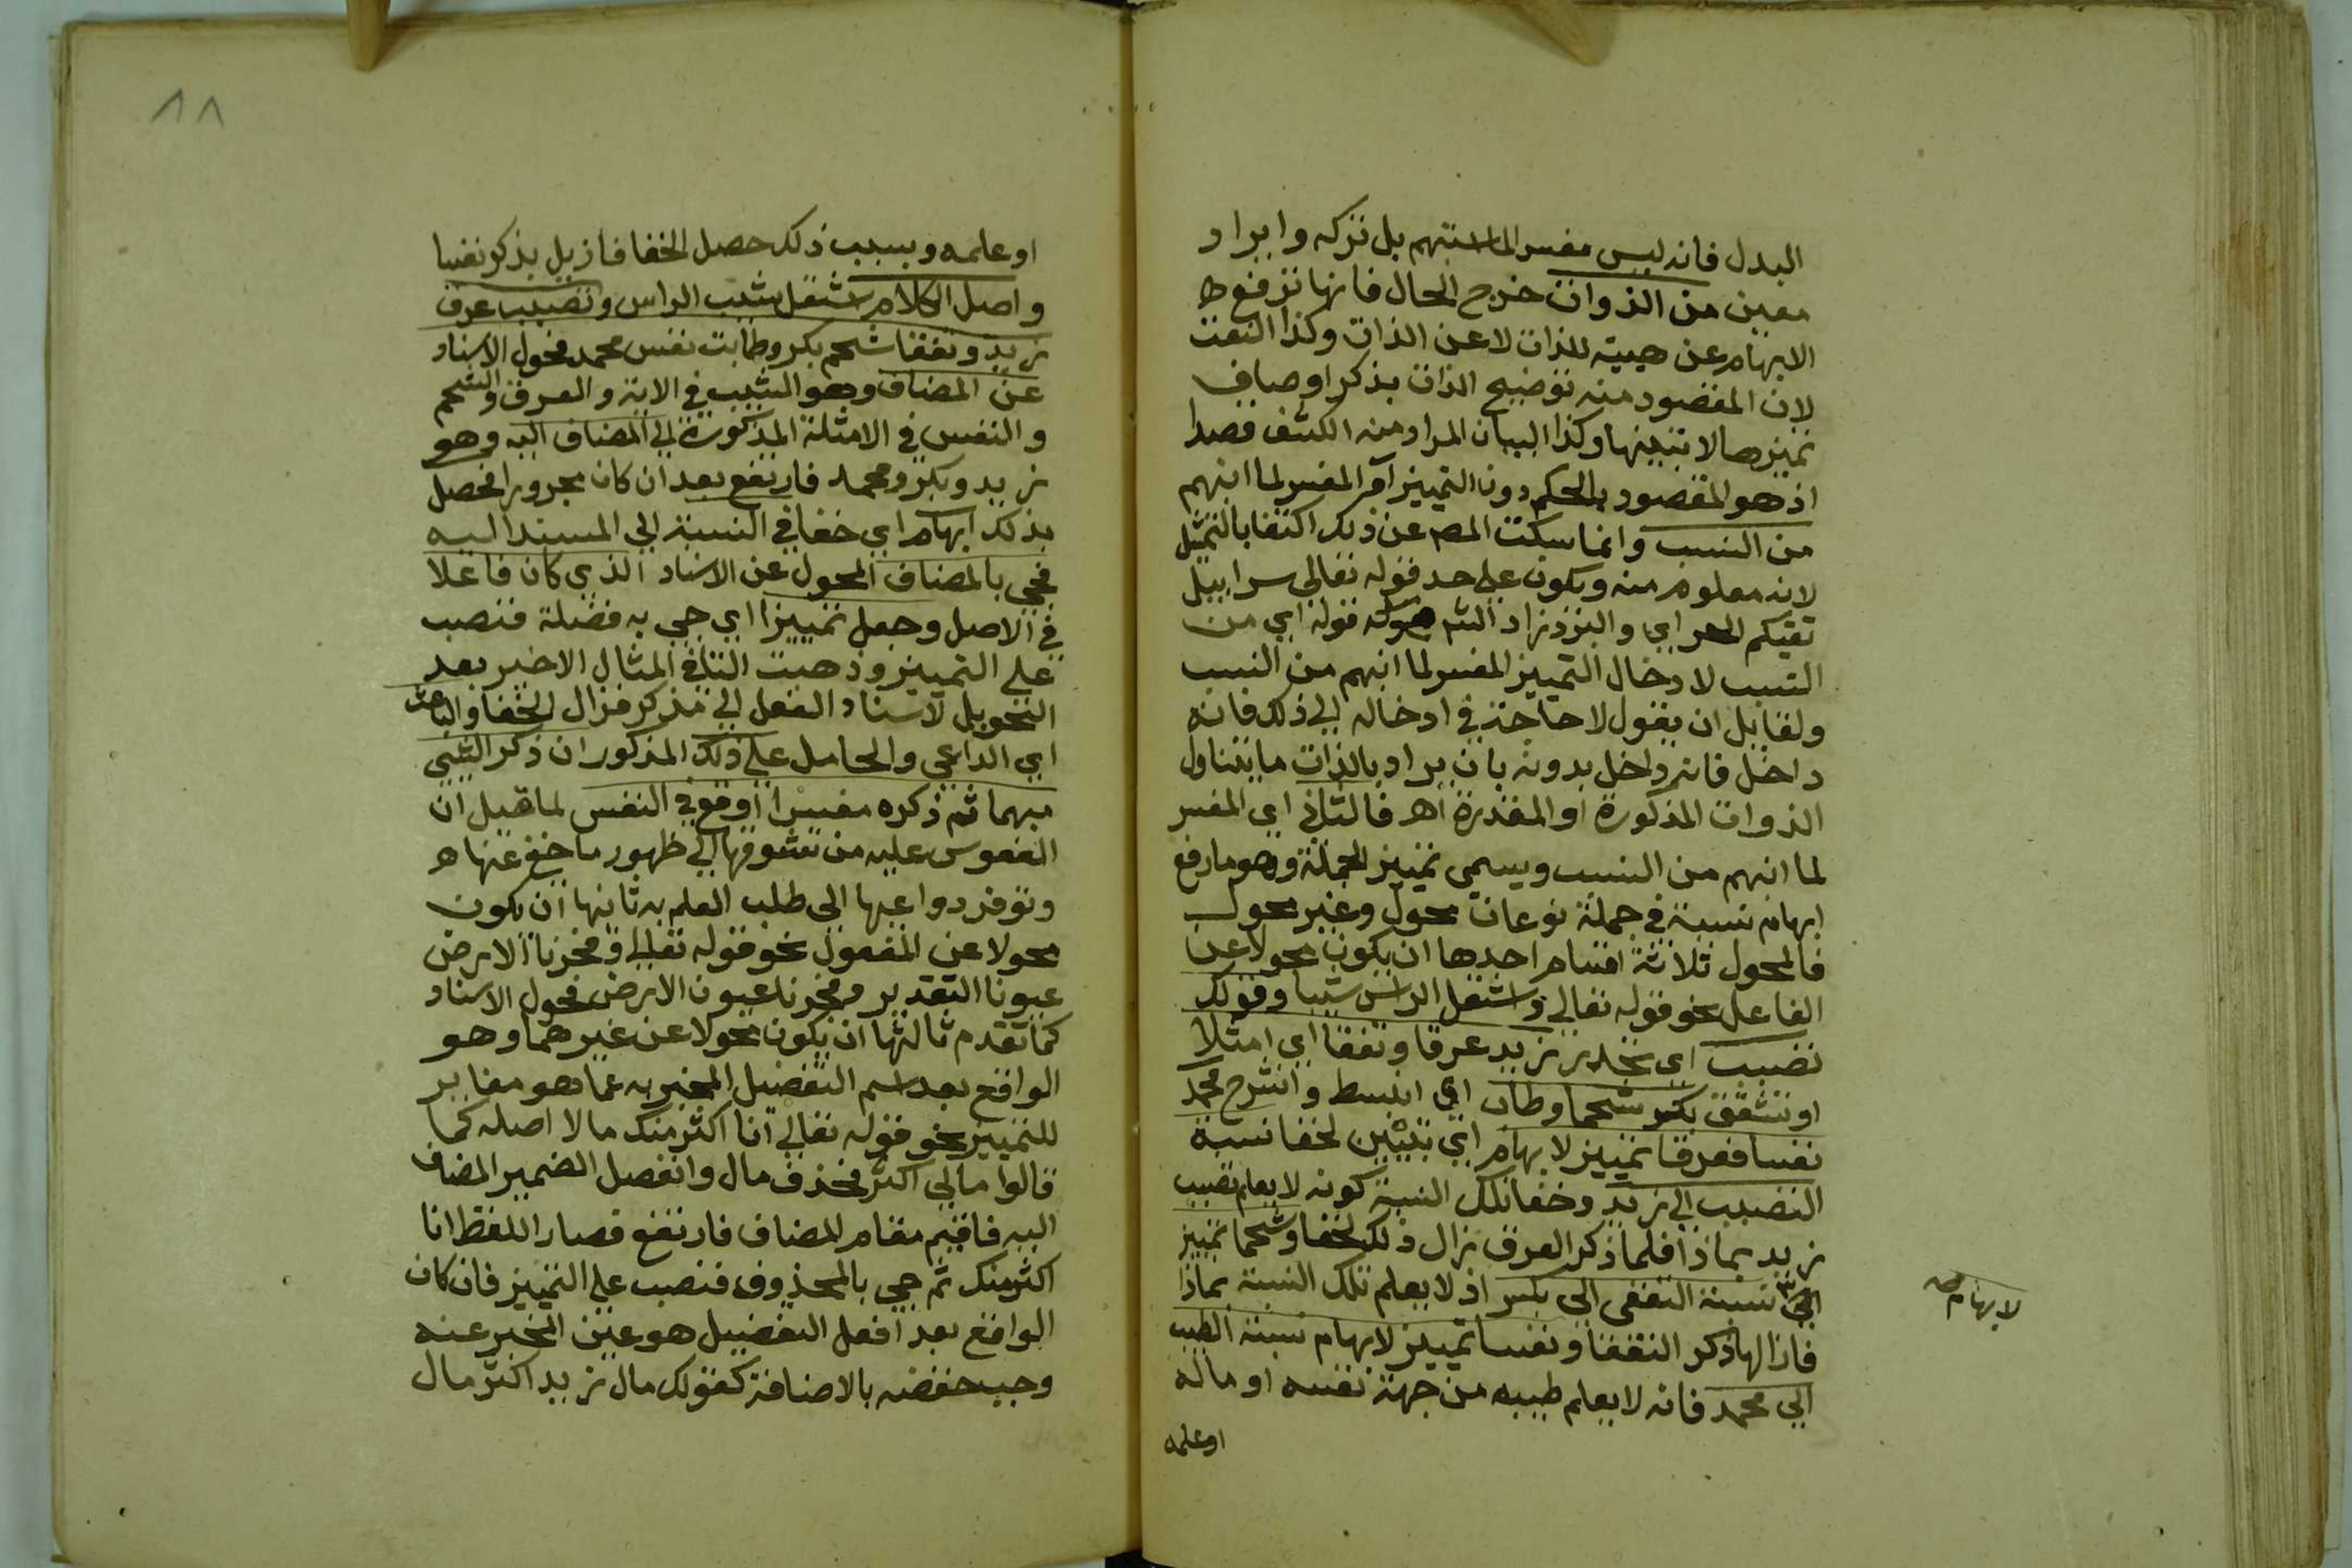 البدل فانه ليس مفسر الما انبهم بل تركه وايراد
معين من الذوات خرج الحال فانها ترفع
الابهام عن هيئة للذات لا عن الذات وكذا النعت
لان المقصود منه توضيح الذات بذكر اوصاف
تميزها لا تبيينها وكذا البيان المراد منه الكشف قصدا
اذ هو المقصود بالحكم دون التمييز المفسر لما انبهم
من النسب وانما سكت المص عن ذلك اكتفا بالتمثيل
لانه معلوم منه ويكون على حد قوله تعالى سرابيل
تقيكم الحر اي والبرد زاد الش قوله اي من
النسب لادخال التمييز المفسر لما انبهم من النسب
ولقايل ان يقول لا حاجة في ادخاله الى ذلك فانه
داخل فانه داخل بدونه بان يراد بالذات ما يتناول
الذوات المذكورة او المقدرة اه فالثاني اي المفسر
لما انبهم من النسب ويسمى تمييز الجملة وهو ما رفع
ابهام نسبة في جملة نوعان محول وغير محول
فالمحول ثلاثة اقسام احدها ان يكون محولا عن
الفاعل نحو قوله تعالى واشتعل الراس شيبا وقولك
تصبب اي تحدر زيد عرقا وتفقا اي امتلا
او تشقق بكر شحما وطاب اي انبسط وانشرح محمد
نفسا فعرقا تمييز لابهام اي تبيين لخفا نسبة
التصبب الى زيد وخفا تلك النسبة كونه لا يعلم تصبب
زيد بماذا فلما ذكر العرق زال ذلك الخفا وشحما تمييز
لابهام صح
نسبة التفقي الى بكر اذ لا يعلم تلك النسبة بماذا
فازالها ذكر التفقا ونفسا تمييز لابهام نسبة الطيب
الى محمد فانه لا يعلم طيبه من جهة نفسه او ماله
او علمه
٨٨
او علمه وبسبب ذلك حصل الخفا فازيل بذكر نفسا
واصل الكلام اشتعل شيب الراس وتصبب عرق
زيد وتفقا شحم بكر وطابت نفس محمد فحول الاسناد
عن المضاف وهو الشيب في الاية والعرق والشحم
والنفس في الامثلة المذكورة الى المضاف اليه وهو
زيد وبكر ومحمد فارتفع بعد ان كان مجرورا فحصل
بذلك ابهام اي خفا في النسبة الى المسند اليه
فجي بالمضاف المحول عن الاسناد الذي كان فاعلا
في الاصل وجعل تمييزا اي جي به فضلة فنصب
على التمييز وذهبت التا في المثال الاخير بعد
التحويل لاسناد الفعل الى مذكر فزال الخفا والباعث
اي الداعي والحامل على ذلك المذكور ان ذكر الشي
مبهما ثم ذكره مفسرا اوقع في النفس لما قبل ان
النفوس عليه من تشوقها الى ظهور ما خفي عنها
وتوفر دواعيها الى طلب العلم به ثانيها ان يكون
محولا عن المفعول نحو قوله تعالى وفجرنا الارض
عيونا التقدير وفجرنا عيون الارض فحول الاسناد
كما تقدم ثالثها ان يكون محولا عن غيرهما وهو
الواقع بعد اسم التفضيل المخبر به عما هو مغاير
للتمييز نحو قوله تعالى انا اكثر منك مالا اصله كما
قالوا مالي اكثر فحذف مال وانفصل الضمير المضاف
اليه فاقيم مقام المضاف فارتفع فصار اللفظ انا
اكثر منك ثم جي بالمحذوف فنصب على التمييز فان كان
الواقع بعد افعل التفضيل هو عين المخبر عنه
وجب خفضه بالاضافة كقولك مال زيد اكثر مال